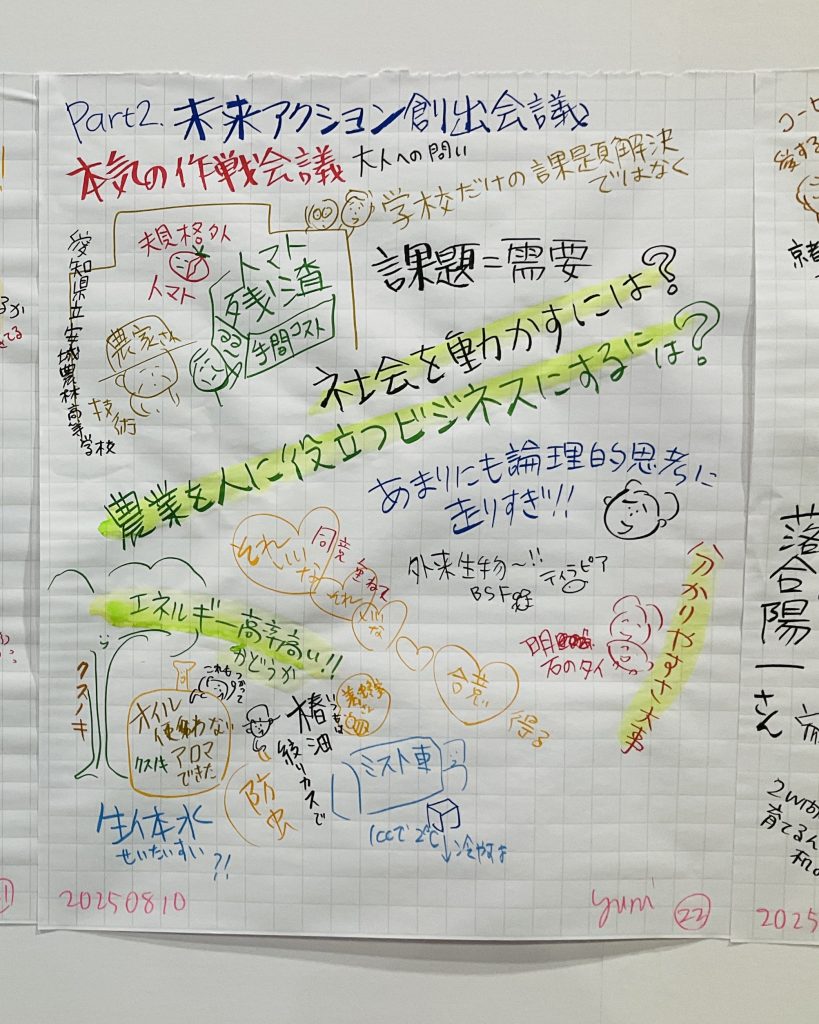 Part2. 未来アクション創出会議
本気の作戦会議
大人への問い
学校だけの課題解決
ではなく
愛知県立安城農林高等学校
規格外
トマト
トマト
残渣
手間コスト
農家さん
技術
課題=需要
社会を動かすには?
農業を人に役立つビジネスにするには?
あまりにも論理的思考に
走りすぎ!!
それいいな
同意
重ねて
外来生物〜!!
ティラピア
BSF
分かりやすさ大事
石のタイ
合意
得る
エネルギー高率高い!!
かどうか
クスノキ
これもつかって
オイル
使わない
クスノキ アロマ
できた
椿油
絞りカスで
いつもは
防虫
ミスト車
1ccで2℃
↓冷やす
生体水
せいたいすい
?!
20250810
yumi
22
コーヒ
京都
落合陽一さん
2Wか
育てるん
2025